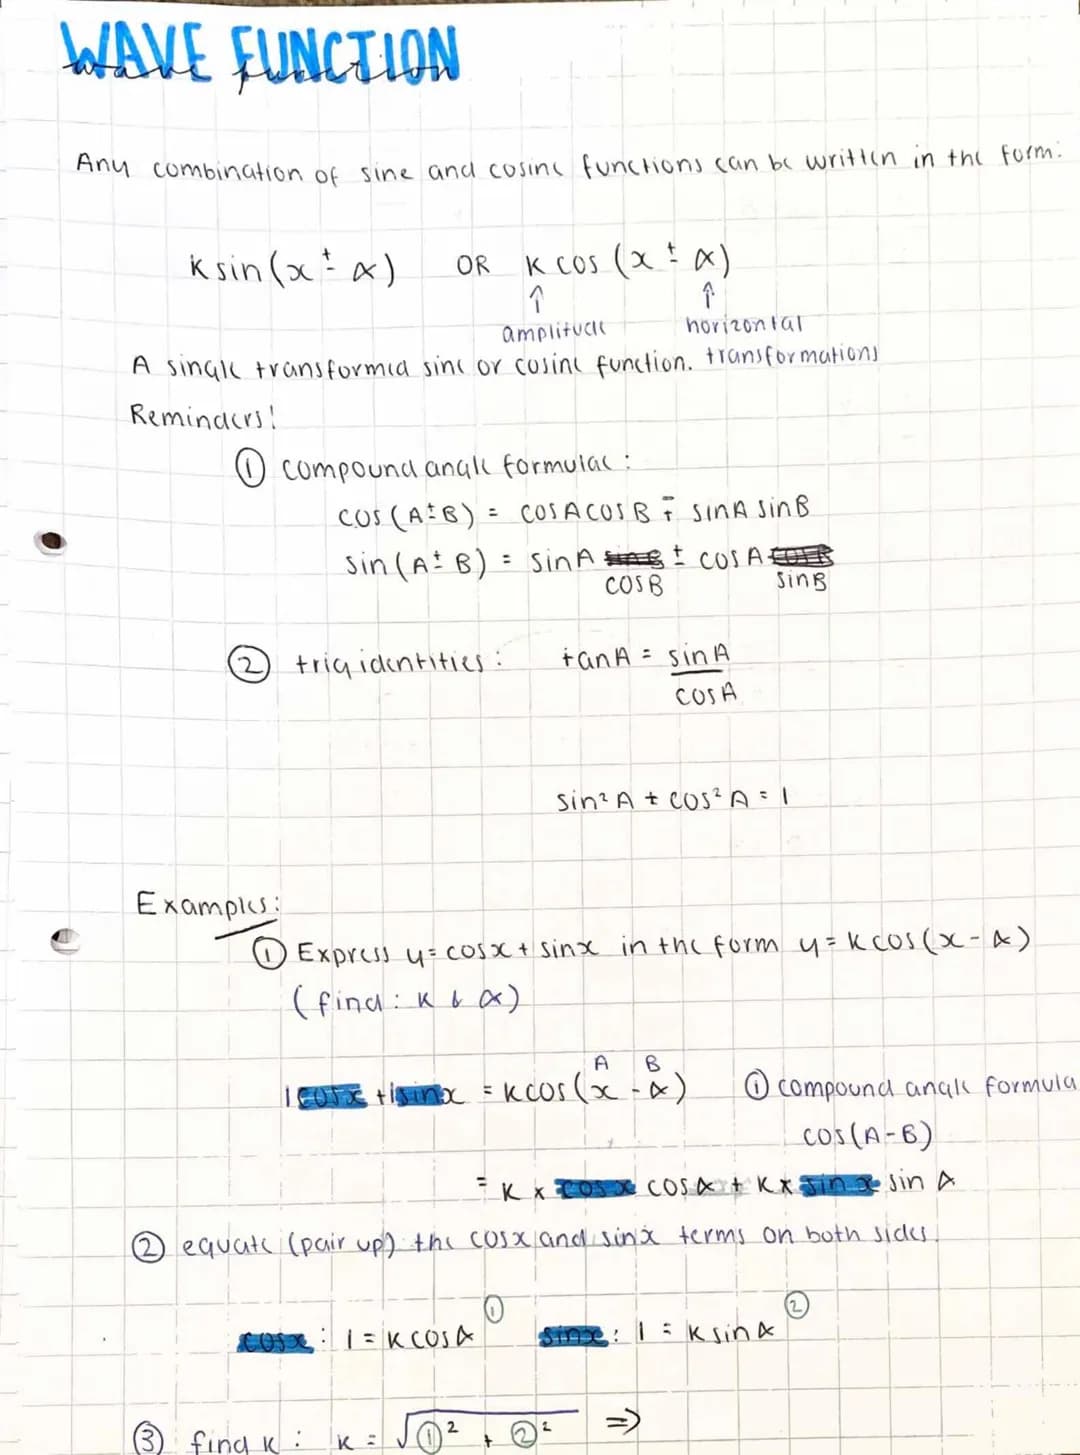 WAVE FUNCTION
wave function
Any combination of sine and cosine functions can be written in the form:
k sin(x ± α) OR k cos (x ± α)
↑ ↑
amplitude horizontal
A single transformed sine or cosine function. transformations
Reminders!
① compound angle formulae :
cos (A±B) = cosAcosB ∓ sinA sinB
sin (A± B) = sinA ± cosA
cosB sinB
② trig identities : tanA = sinA
cosA
sin²A + cos²A = 1
Examples:
① Express y=cosx + sinx in the form y=kcos(x-α)
(find: k & α)
A B
1cosx +1sinx = kcos(x -α) ① compound angle formula
cos(A-B)
= k x cosx cosα + kx sinx sin α
② equate (pair up) the cosx and sinx terms on both sides.
① ②
cosx: 1 = kcosα sinx: 1 = ksinα
③ find k : k = √①² + ②² ⇒